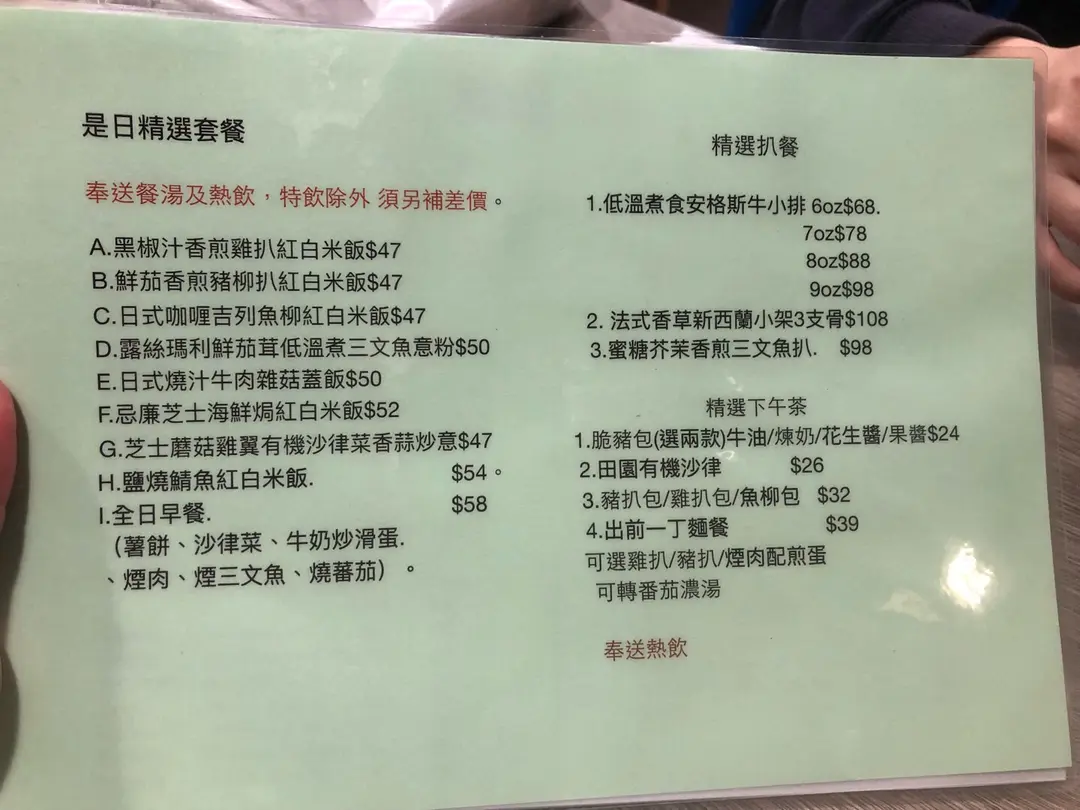 是日精選套餐
奉送餐湯及熱飲，特飲除外 須另補差價。
A.黑椒汁香煎雞扒紅白米飯$47
B.鮮茄香煎豬柳扒紅白米飯$47
C.日式咖喱吉列魚柳紅白米飯$47
D.露絲瑪利鮮茄茸低溫煮三文魚意粉$50
E.日式燒汁牛肉雜菇蓋飯$50
F.忌廉芝士海鮮焗紅白米飯$52
G.芝士蘑菇雞翼有機沙律菜香蒜炒意$47
H.鹽燒鯖魚紅白米飯. $54。
I.全日早餐. $58
（薯餅、沙律菜、牛奶炒滑蛋.
、煙肉、煙三文魚、燒蕃茄）。
精選扒餐
1.低溫煮食安格斯牛小排 6oz$68.
7oz$78
8oz$88
9oz$98
2. 法式香草新西蘭小架3支骨$108
3.蜜糖芥茉香煎三文魚扒. $98
精選下午茶
1.脆豬包(選兩款)牛油/煉奶/花生醬/果醬$24
2.田園有機沙律 $26
3.豬扒包/雞扒包/魚柳包 $32
4.出前一丁麵餐 $39
可選雞扒/豬扒/煙肉配煎蛋
可轉番茄濃湯
奉送熱飲